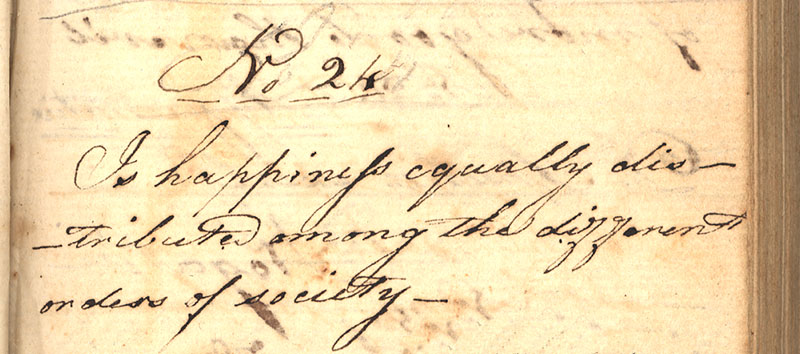 No 24
Is happineſs equally dis–
–tributed among the different
orders of society–